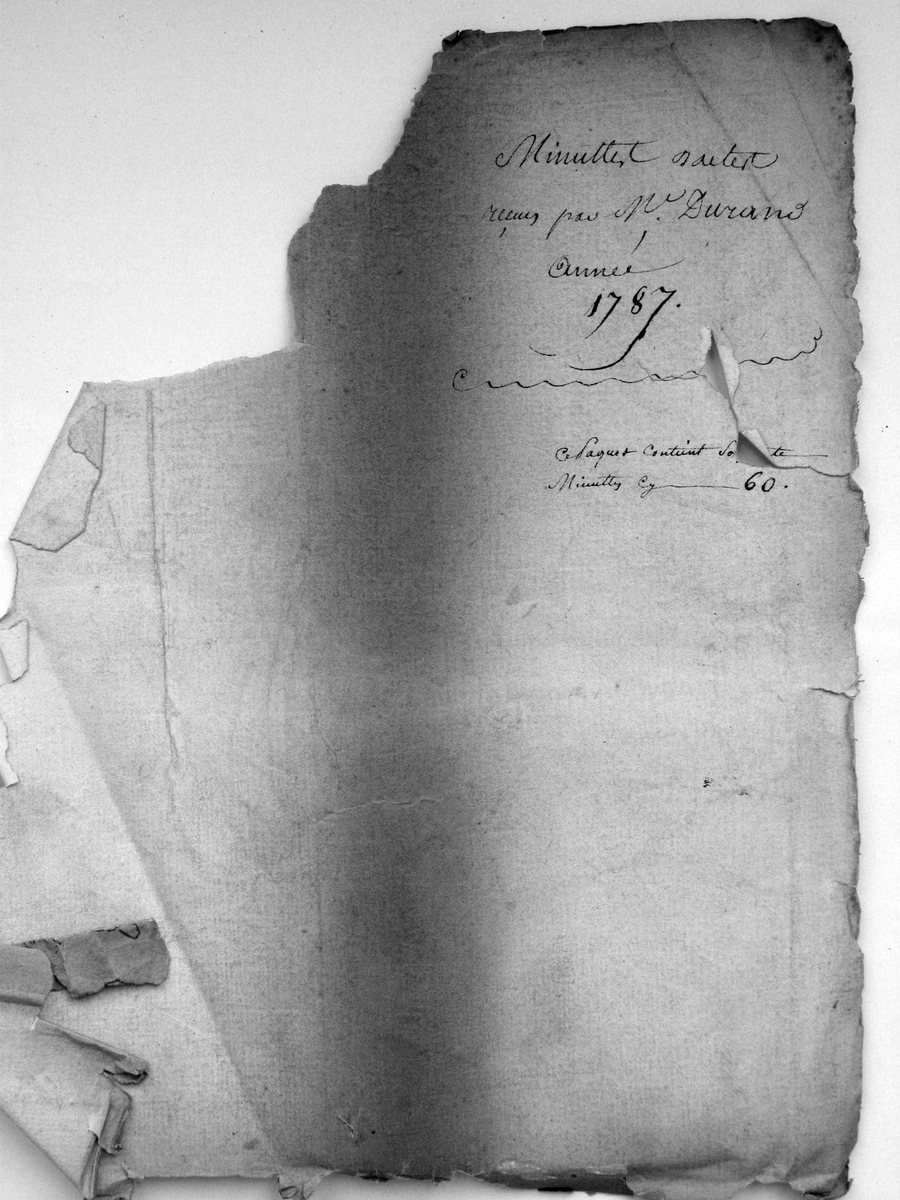 Minuttes d'actes
reçues par Me. Durand
année
1787.
Ce Paquet Contient So te
Minuttes Cy 60.